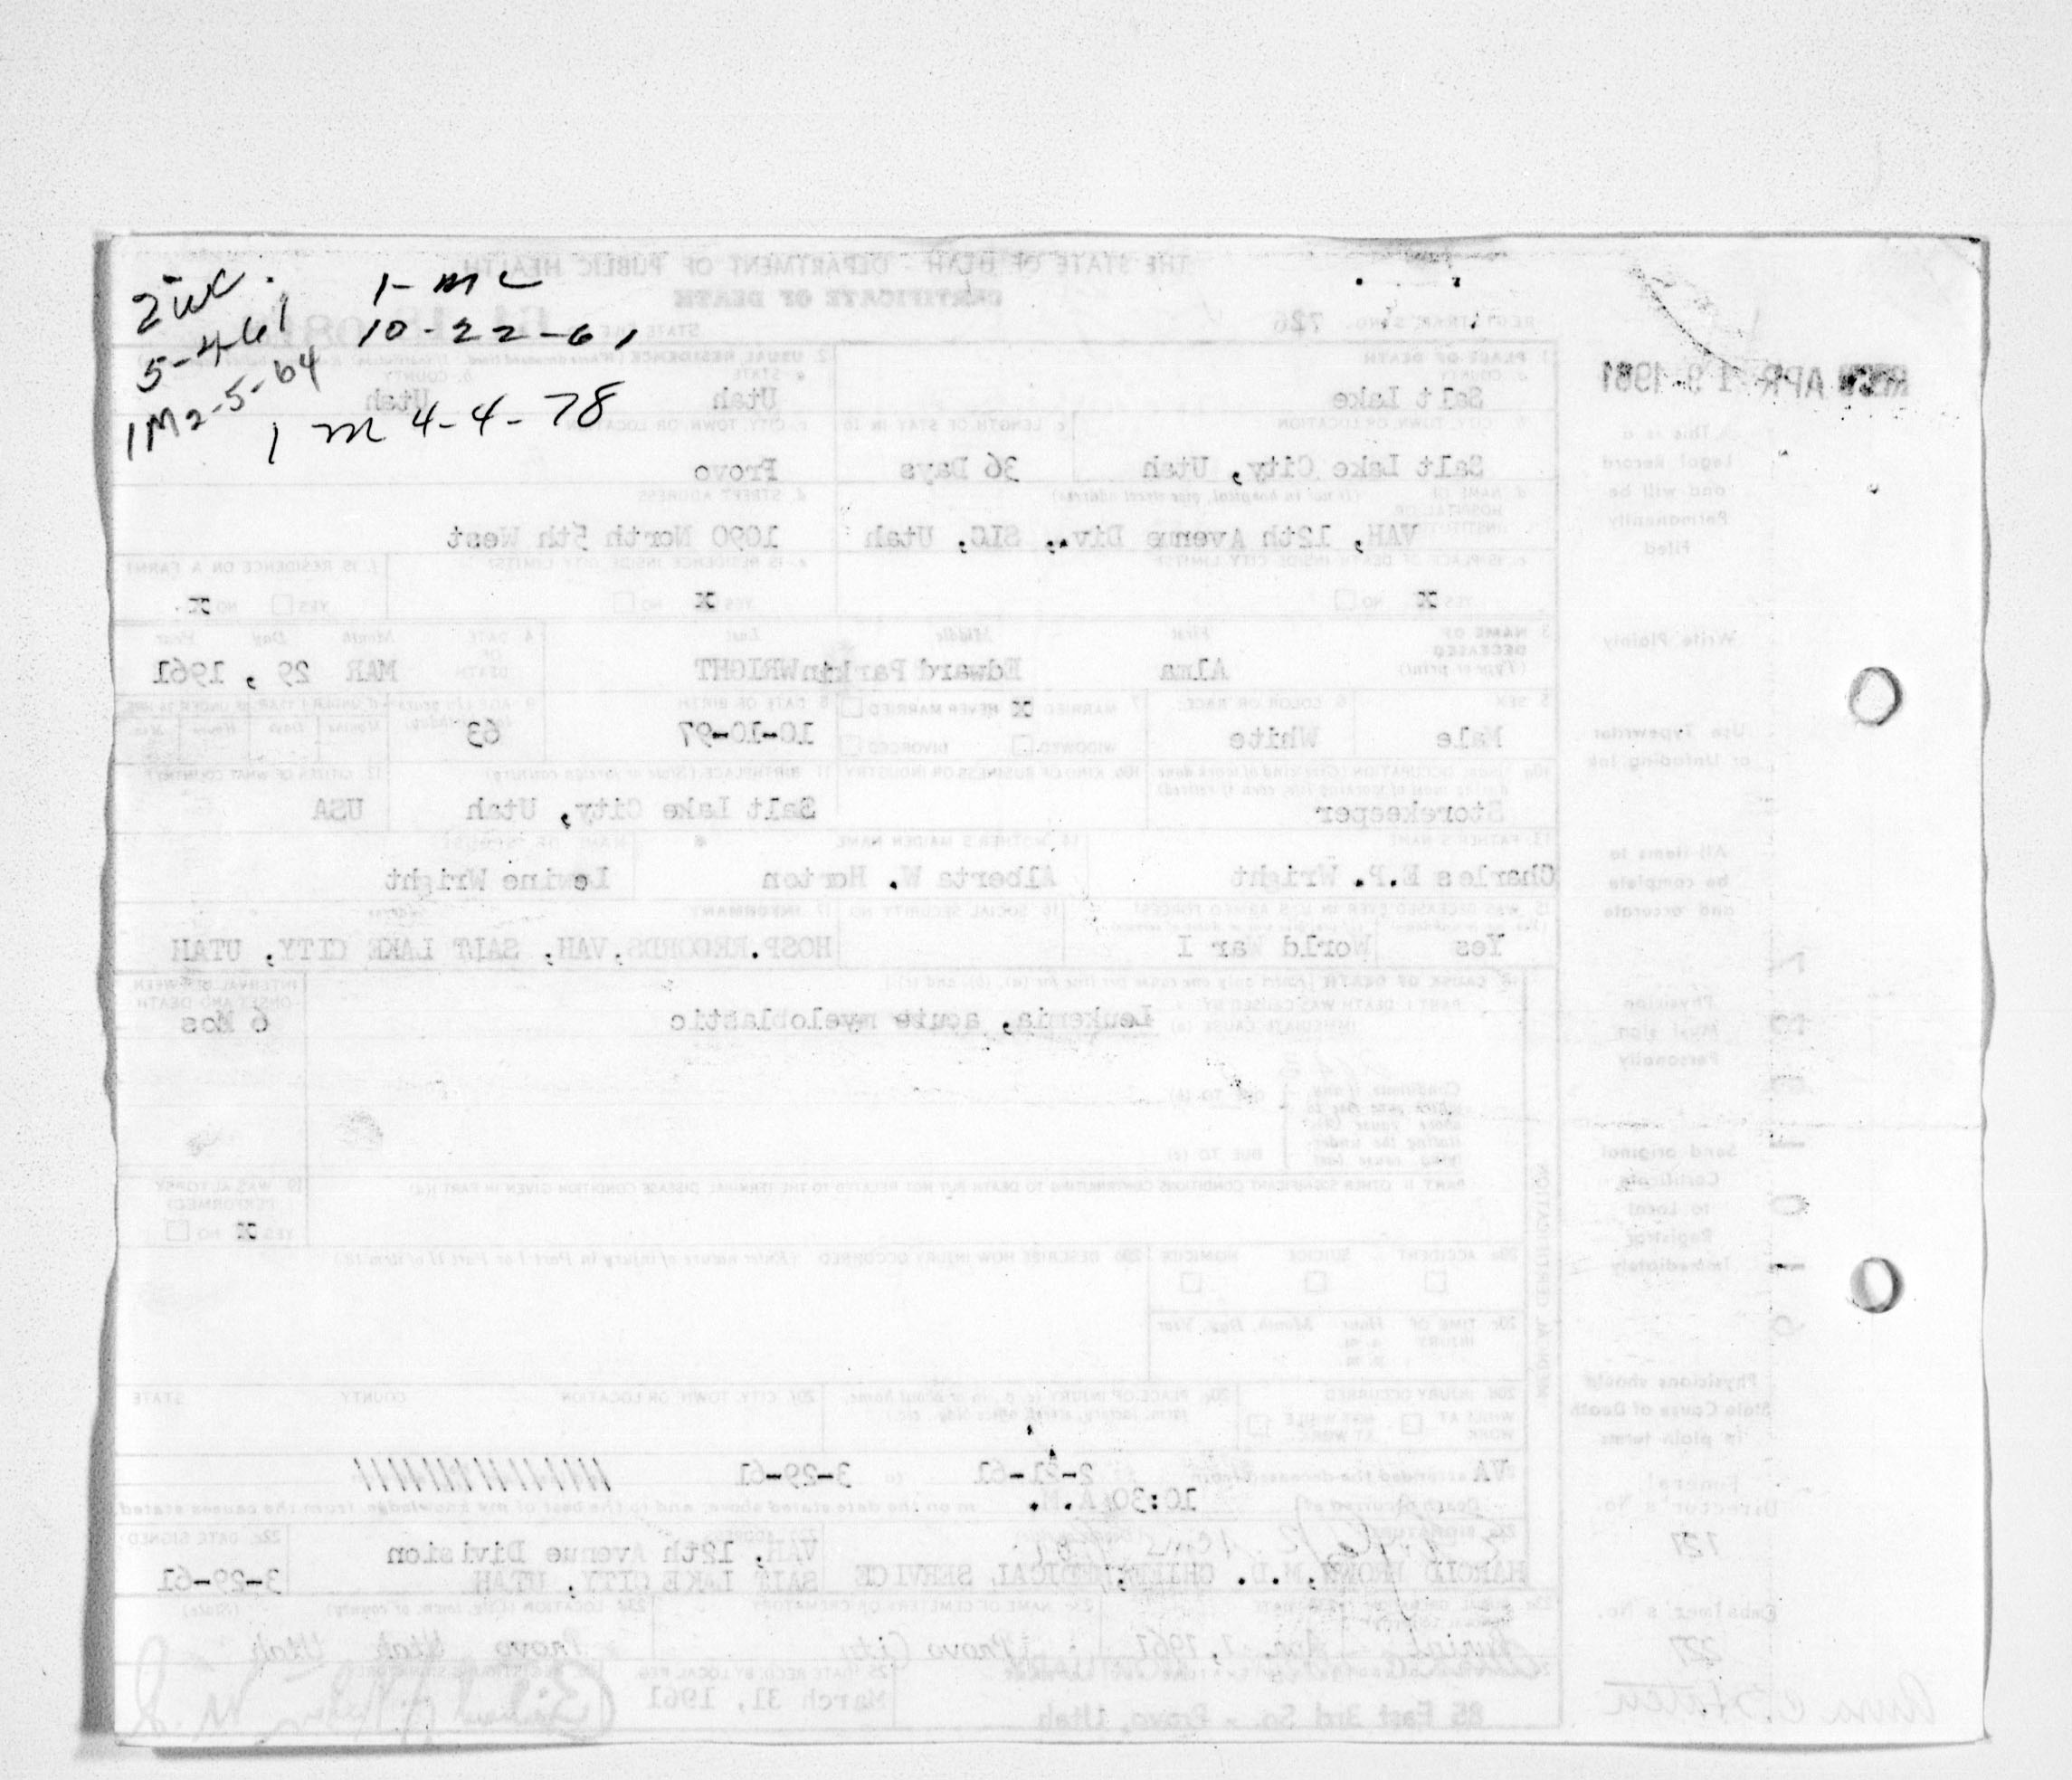 2 wc.
5-4-61
1 M 2-5-64
1- mc
10-22-61
1 m 4-4-78
THE STATE OF UTAH - DEPARTMENT OF PUBLIC HEALTH
CERTIFICATE OF DEATH
REGISTRAR'S NO. 726
STATE FILE NO.
REC'D APR 19 1961
1 PLACE OF DEATH
a. COUNTY
Salt Lake
2. USUAL RESIDENCE
a. STATE
Utah
b. COUNTY
Utah
b. CITY, TOWN, OR LOCATION
Salt Lake City, Utah
c LENGTH OF STAY IN 1b
36 Days
c. CITY, TOWN, OR LOCATION
Provo
d. NAME OF HOSPITAL OR INSTITUTION (If not in hospital, give street address)
VAH, 12th Avenue Div., SLC, Utah
d. STREET ADDRESS
1090 North 5th West
e. IS PLACE OF DEATH INSIDE CITY LIMITS?
YES X NO
e. IS RESIDENCE INSIDE CITY LIMITS?
YES X NO
f. IS RESIDENCE ON A FARM?
YES NO X
3 NAME OF DECEASED
(Type or print)
First Middle Last
Alma Edward Parkin WRIGHT
4 DATE OF DEATH
Month Day Year
MAR 29, 1961
5 SEX
Male
6 COLOR OR RACE
White
7 MARRIED X NEVER MARRIED
WIDOWED DIVORCED
8 DATE OF BIRTH
10-10-97
63
Storekeeper
10b KIND OF BUSINESS OR INDUSTRY
11 BIRTHPLACE (State or foreign country)
Salt Lake City, Utah
12 CITIZEN OF WHAT COUNTRY?
USA
13. FATHER'S NAME
Charles E.P. Wright
14 MOTHER'S MAIDEN NAME
Alberta W. Horton
NAME OF SPOUSE
Wright
15 WAS DECEASED EVER IN U.S. ARMED FORCES?
Yes World War I
16 SOCIAL SECURITY NO
17 INFORMANT
HOSP. RECORDS, VAH, SALT LAKE CITY, UTAH
18 CAUSE OF DEATH [Enter only one cause per line for (a), (b), and (c).]
PART I DEATH WAS CAUSED BY
IMMEDIATE CAUSE (a)
Leukemia, acute myeloblastic
INTERVAL BETWEEN ONSET AND DEATH
6 Mos
DUE TO (b)
DUE TO (c)
PART II OTHER SIGNIFICANT CONDITIONS CONTRIBUTING TO DEATH BUT NOT RELATED TO THE TERMINAL DISEASE CONDITION GIVEN IN PART I(a)
19 WAS AUTOPSY PERFORMED?
YES X NO
20a ACCIDENT SUICIDE HOMICIDE
20b DESCRIBE HOW INJURY OCCURRED (Enter nature of injury in Part I or Part II of item 18.)
20c TIME OF INJURY
Hour Month, Day, Year
a. m.
p. m.
20d INJURY OCCURRED
WHILE AT WORK NOT WHILE AT WORK
20e PLACE OF INJURY (e. g., in or about home, farm, factory, street, office bldg., etc.)
20f CITY, TOWN, OR LOCATION COUNTY STATE
VA attended the deceased from 2-21-61 to 3-29-61
Death occurred at 10:30 A.M. m on the date stated above, and to the best of my knowledge, from the causes stated.
22a SIGNATURE
HAROLD BROWN, M.D. CHIEF, MEDICAL SERVICE
22b ADDRESS
VAH, 12th Avenue Division
SALT LAKE CITY, UTAH
22c DATE SIGNED
3-29-61
Burial Apr. 1, 1961 Provo City Provo Utah Utah
25 DATE REC'D BY LOCAL REG.
March 31, 1961
85 East 3rd So. - Provo, Utah
This is a
Legal Record
and will be
Permanently
Filed
Write Plainly
Use Typewriter
or Unfading Ink
All items to
be complete
and accurate
Physician
Must sign
Personally
Send original
Certificate
to Local
Registrar
Immediately
Physicians should
State Cause of Death
in plain terms
Funeral
Director's No.
121
Embalmer's No.
227
MEDICAL CERTIFICATION